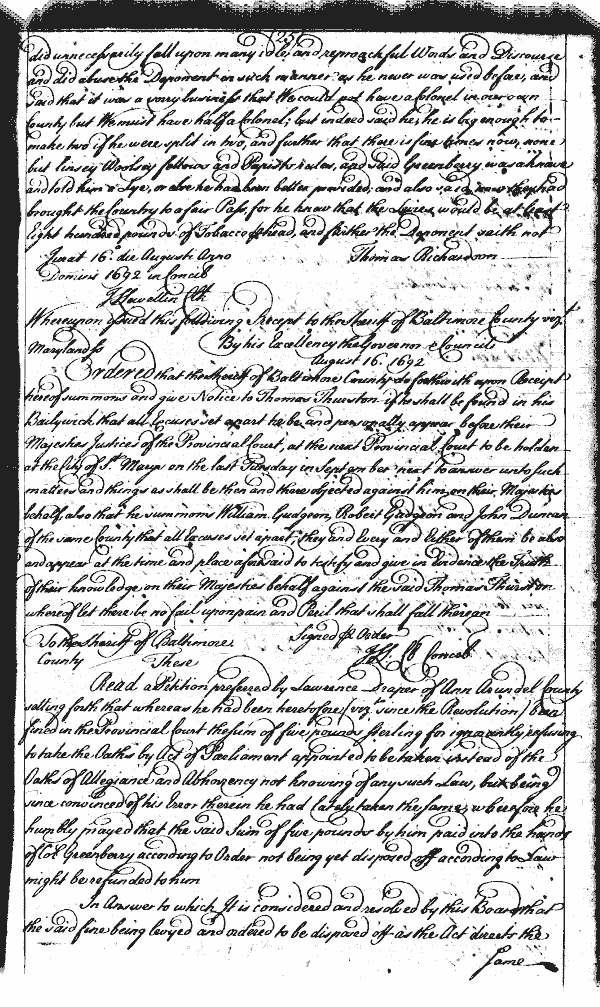 256
did unnecessarily fall upon many idle and reproachful Words and Discourse
and did abuse the Deponent in such manner as he never was used before, and
said that it was a very business that We could not have a Colonel in our own
County but We must have half a Colonel; but indeed said he, he is big enough to
make two if he were split in two, and further that there is fine times now, none
but Linsey Woolsey fellows and Papists rules, and said Greenberry was a knave
and told him a Lye, or else he had been better provided; and also said now they had
brought the Country to a fair Pass, for he knew that the would be at least
Eight hundred pounds of Tobacco head, and further the Deponent saith not
Jurat 16. die Augusti Anno Thomas Richardson
Domini 1692 in Concil
J Llewellin Clk
Whereupon issued this following Precept to the Sheriff of Baltimore County vizt.
Maryland ss By his Excellency the Governor & Council
August 16. 1692
Ordered that the Sheriff of Baltimore County do forthwith upon Receipt
hereof summons and give Notice to Thomas Thurston if he shall be found in his
Bailywick that all Excuses set apart he be and personally appear before their
Majesties Justices of the Provincial Court, at the next Provincial Court to be holden
at the City of St. Marys on the last Tuesday in September next to answer unto such
matters and things as shall be then and there objected against him, on their Majesties
behalf, also that he summons William Gudgeon, Robert Gudgeon and John Duncan
of the same County that all Excuses set apart, they and Every and Either of them be also
and appear at the time and place aforesaid to testify and give in Evidence the Truth
of their knowledge on their Majesties behalf against the said Thomas Thurston
whereof let there be no fail upon pain and Peril that shall fall thereon
To the Sheriff of Baltimore Signed p Order
County These J Ll. Cl. Concil
Read a Petition preferred by Lawrence Draper of Ann Arundel County
setting forth that whereas he had been heretofore (vizt. since the Revolution) been
fined in the Provincial Court the sum of five pounds sterling for ignorantly refusing
to take the Oaths by Act of Parliament appointed to be taken instead of the
Oaths of Allegiance and Abhorrency not knowing of any such Law, but being
since convinced of his Error therein he had lately taken the same, wherefore he
humbly prayed that the said Sum of five pounds by him paid into the hands
of Col. Greenberry according to Order not being yet disposed off according to Law
might be refunded to him
In Answer to which It is considered and resolved by this Board that
the said fine being levyed and ordered to be disposed off as the Act directs the
same